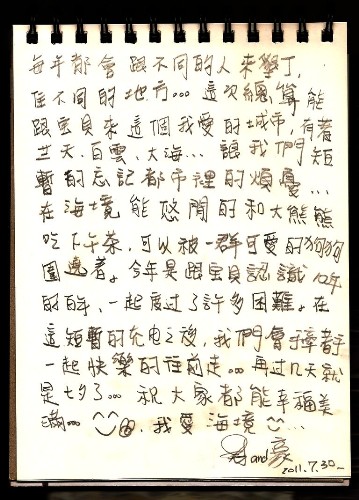 每年都會跟不同的人來墾丁,
住不同的地方... 這次總算能
跟宝貝來這個我愛的城市, 有著
藍天.白雲.大海... 讓我們短
暫的忘記都市裡的煩憂...
在海境能悠閒的和大熊熊
吃下午茶, 可以被一群可愛的狗狗
圍邊着。今年是跟宝貝認識10年
的日子, 一起度过了許多困難。在
這短暫的充电之後, 我們會手牽着手
一起快樂的往前走... 再过几天就
是七夕了... 祝大家都能幸福美
滿... 我愛海境 ...
and豪
2011.7.30